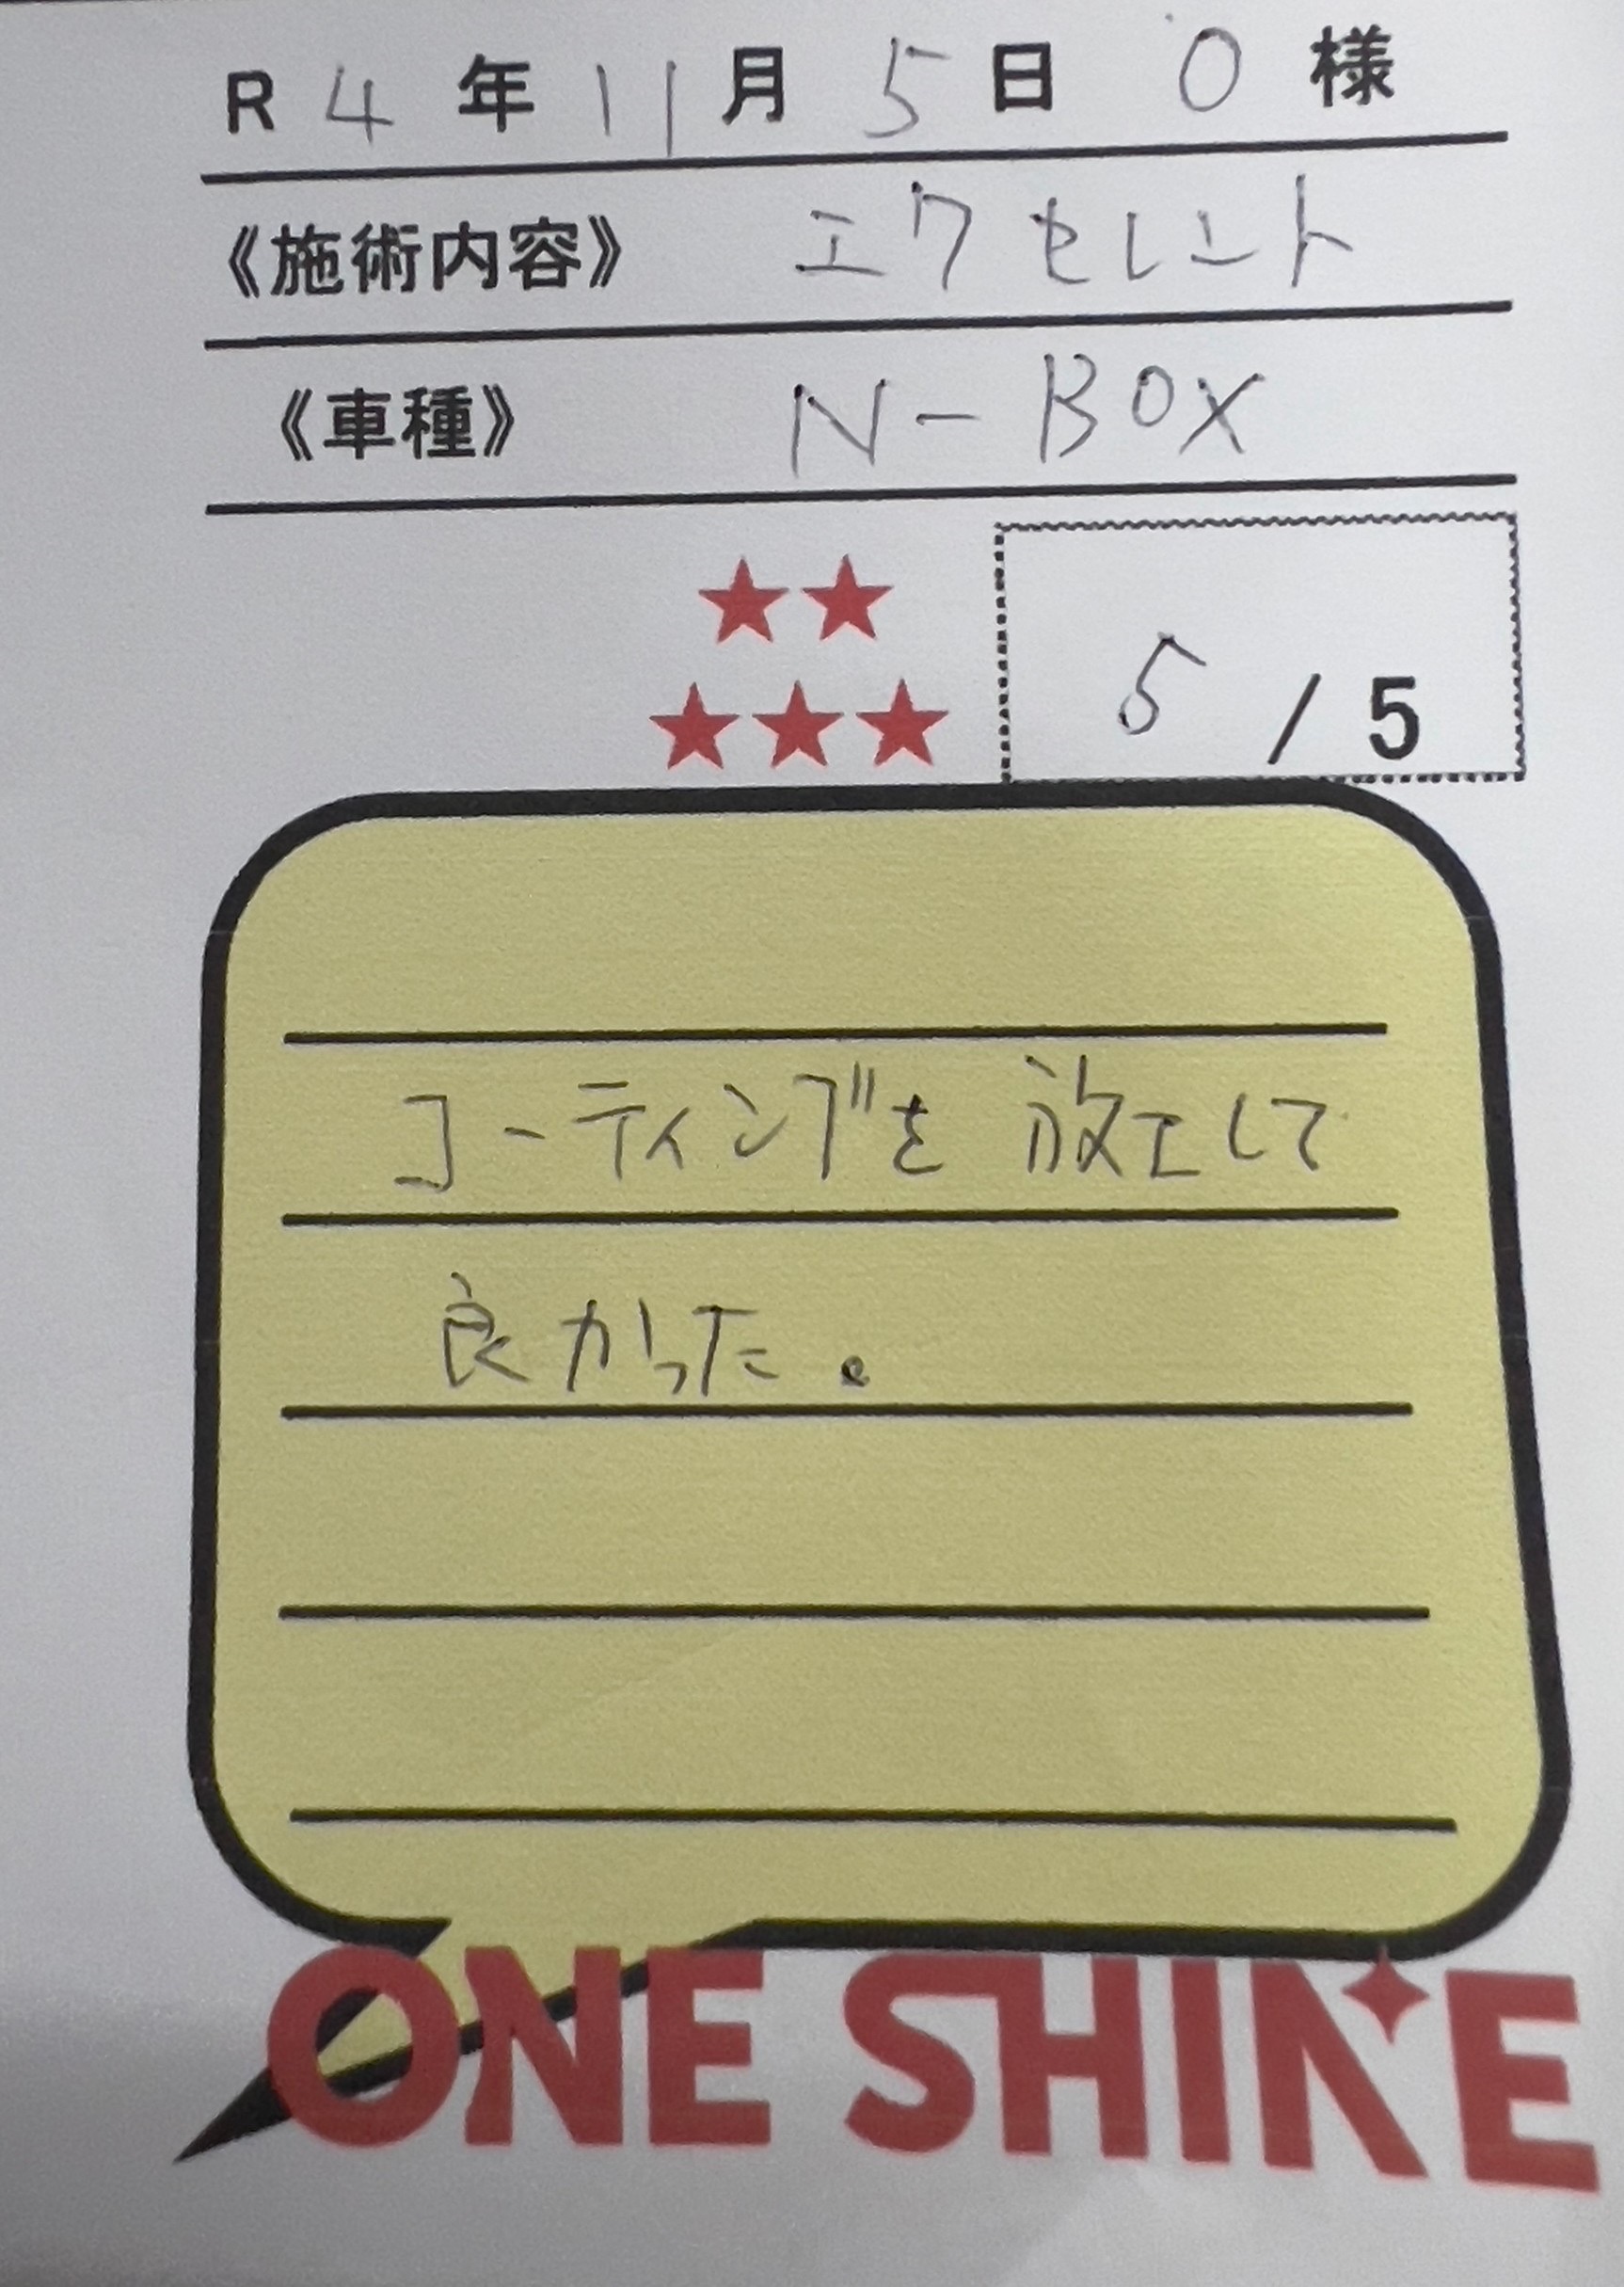 R 4 年 11 月 5 日 O 様
《施術内容》 エクセレント
《車種》 N-BOX
★★
★★★ 5 / 5
コーティングを放工して
良かった。
ONE SHINE